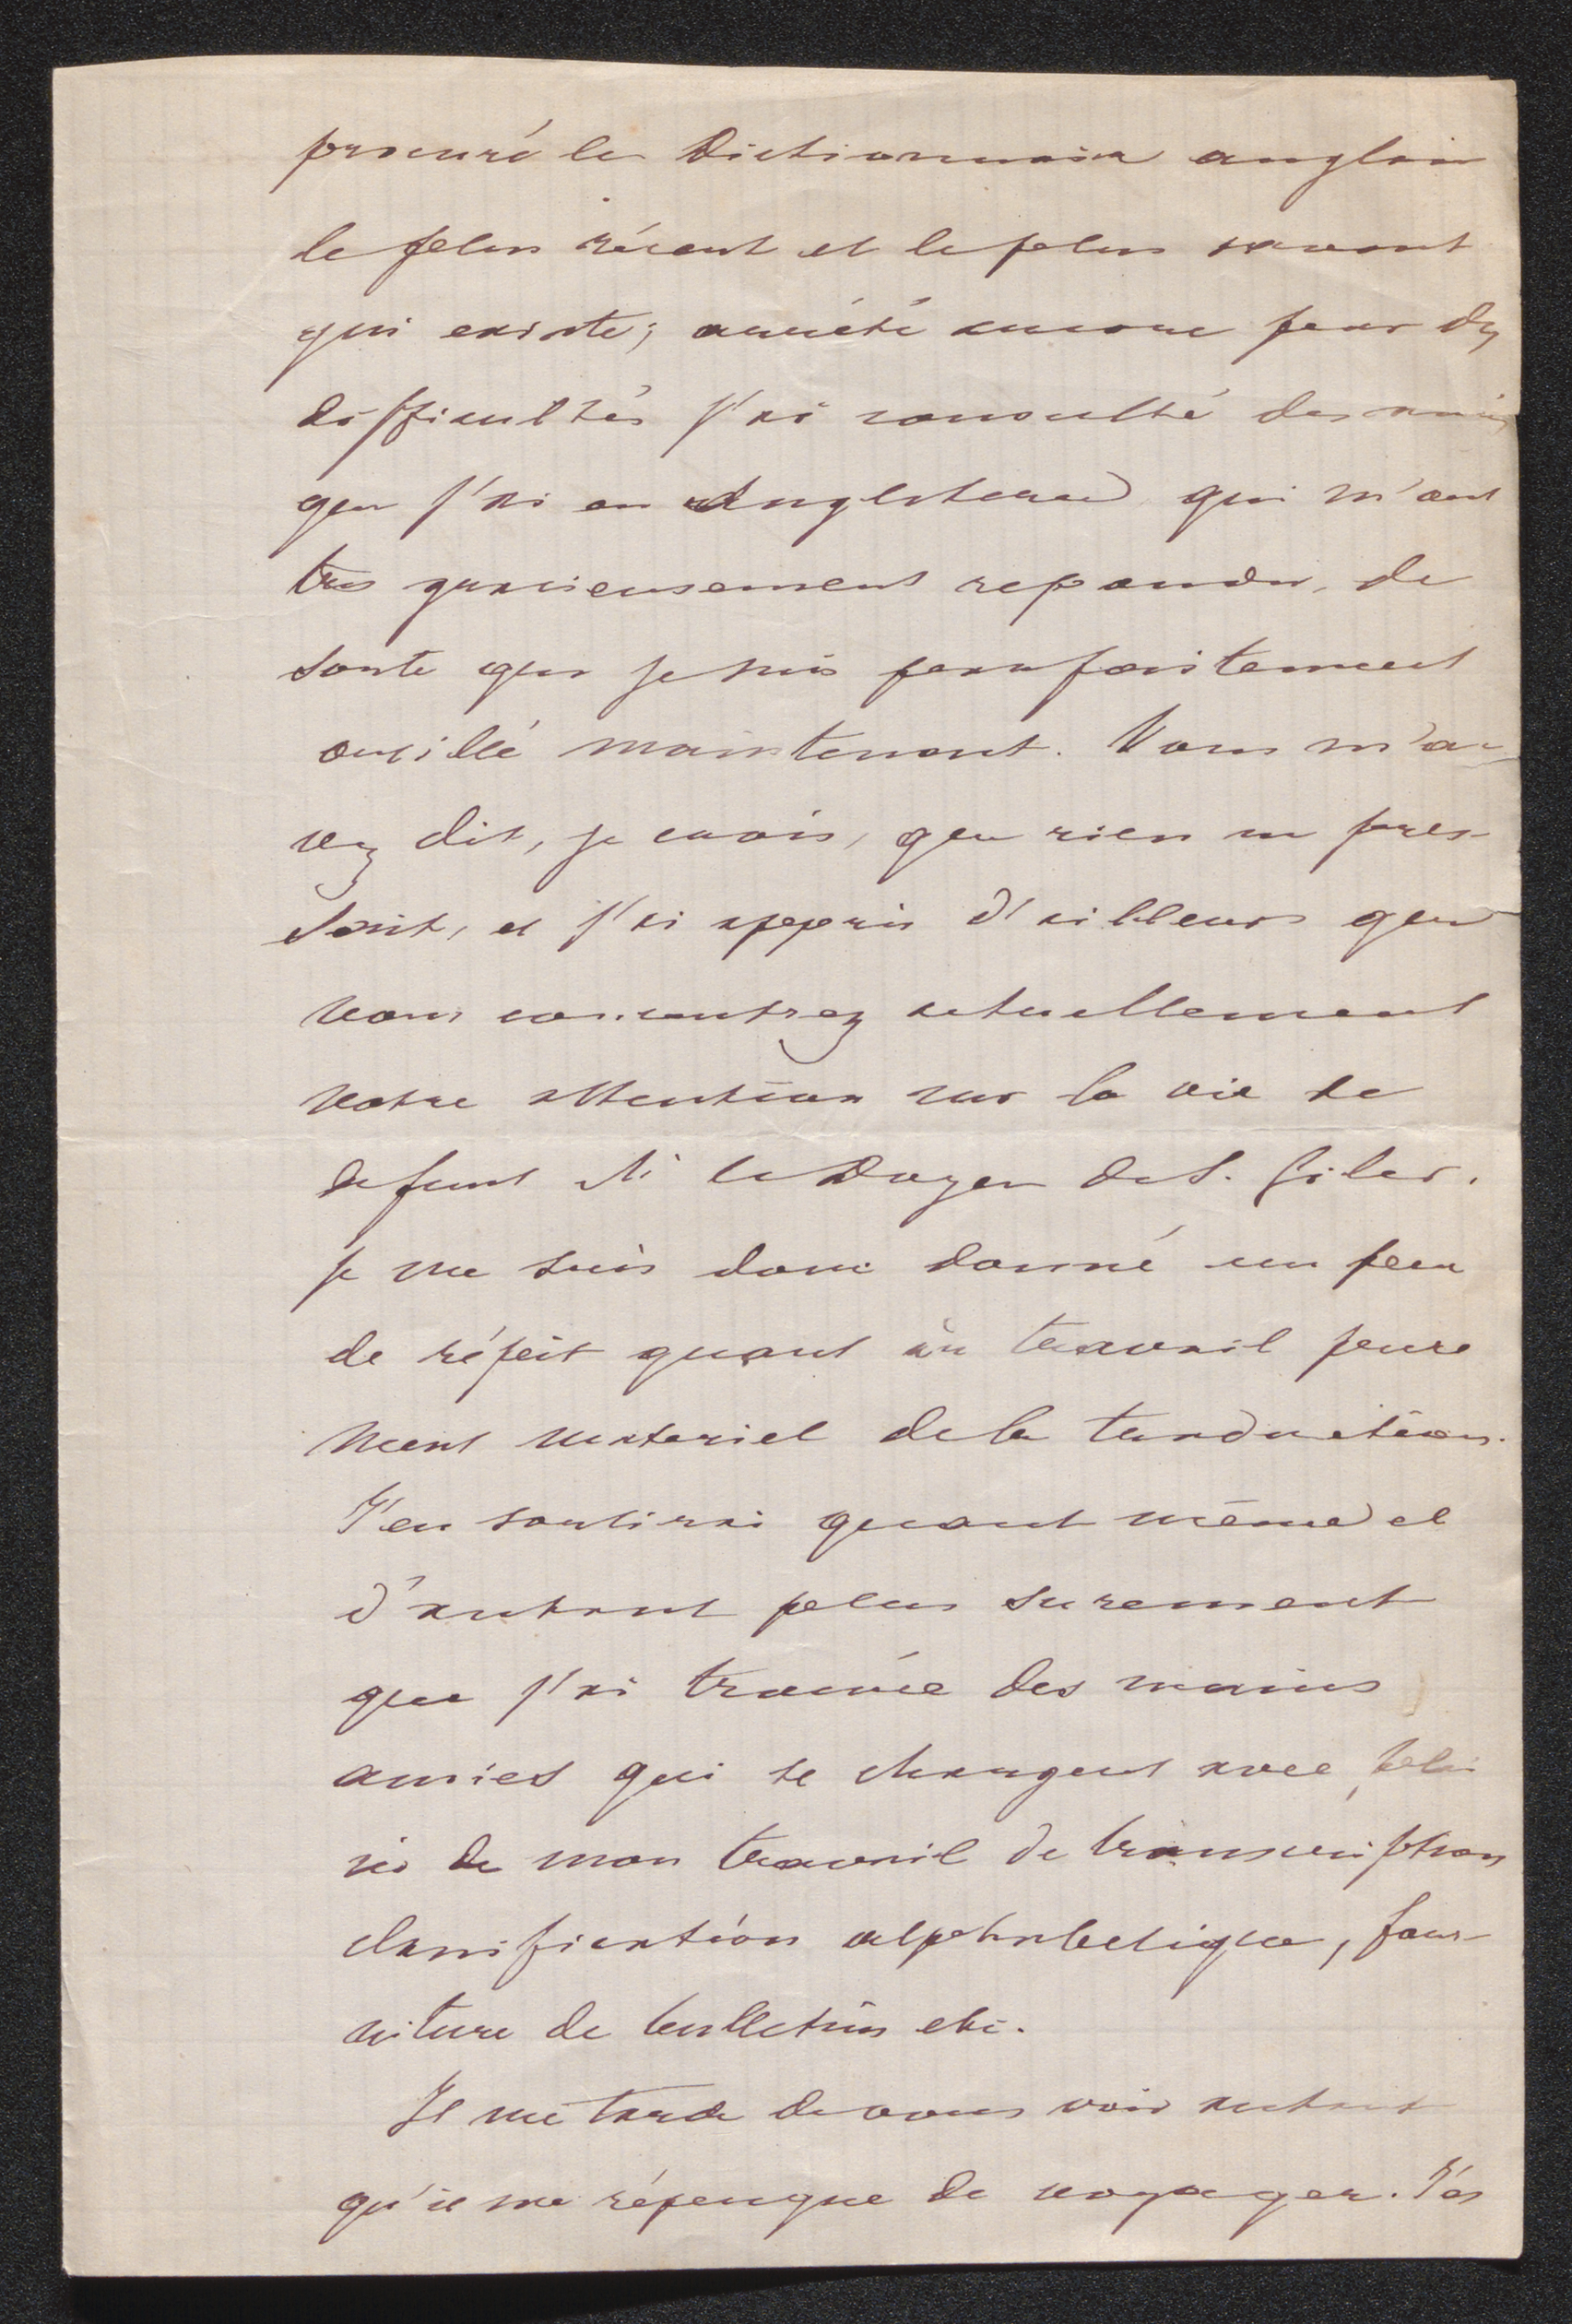 procuré le Dictionnaire anglais
le plus récent et le plus savant
qui existe; arrêté encore par des
difficultés j'ai consulté des amis
que j'ai en Angleterre qui m'ont
tres gracieusement repondu, de
sorte que je suis parfaitement
outillé maintenant. Vous m'a-
vez dit, je crois, que rien ne pres-
sait, et j'ai appris d'ailleurs que
vous concentrez actuellement
votre attention sur la vie de
defunt Mr le Doyen de S. Giles.
je me suis donc donné un peu
de répit quant au travail pure
ment materiel de la traduction.
J'en sortirai quant même et
d'autant plus surement
que j'ai trouvée des mains
amies qui se chargent avec plai
sir de mon travail de transcription
classification alphabetique, four-
niture de bulletins etc.
Il me tarde de vous voir autant
qu'il me répugne de voyager. J'es